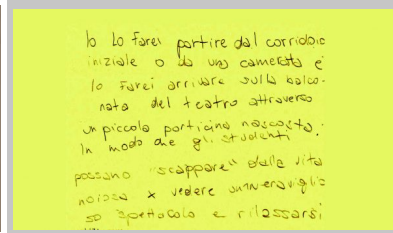 Io Lo farei partire dal corridoio
iniziale o da una camerata e
lo farei arrivare sulla balco-
nata del teatro attraverso
un piccola porticina nascosta.
In modo che gli studenti
possano "scappare" dalla vita
noiosa x vedere un meraviglio
so spettacolo e rilassarsi